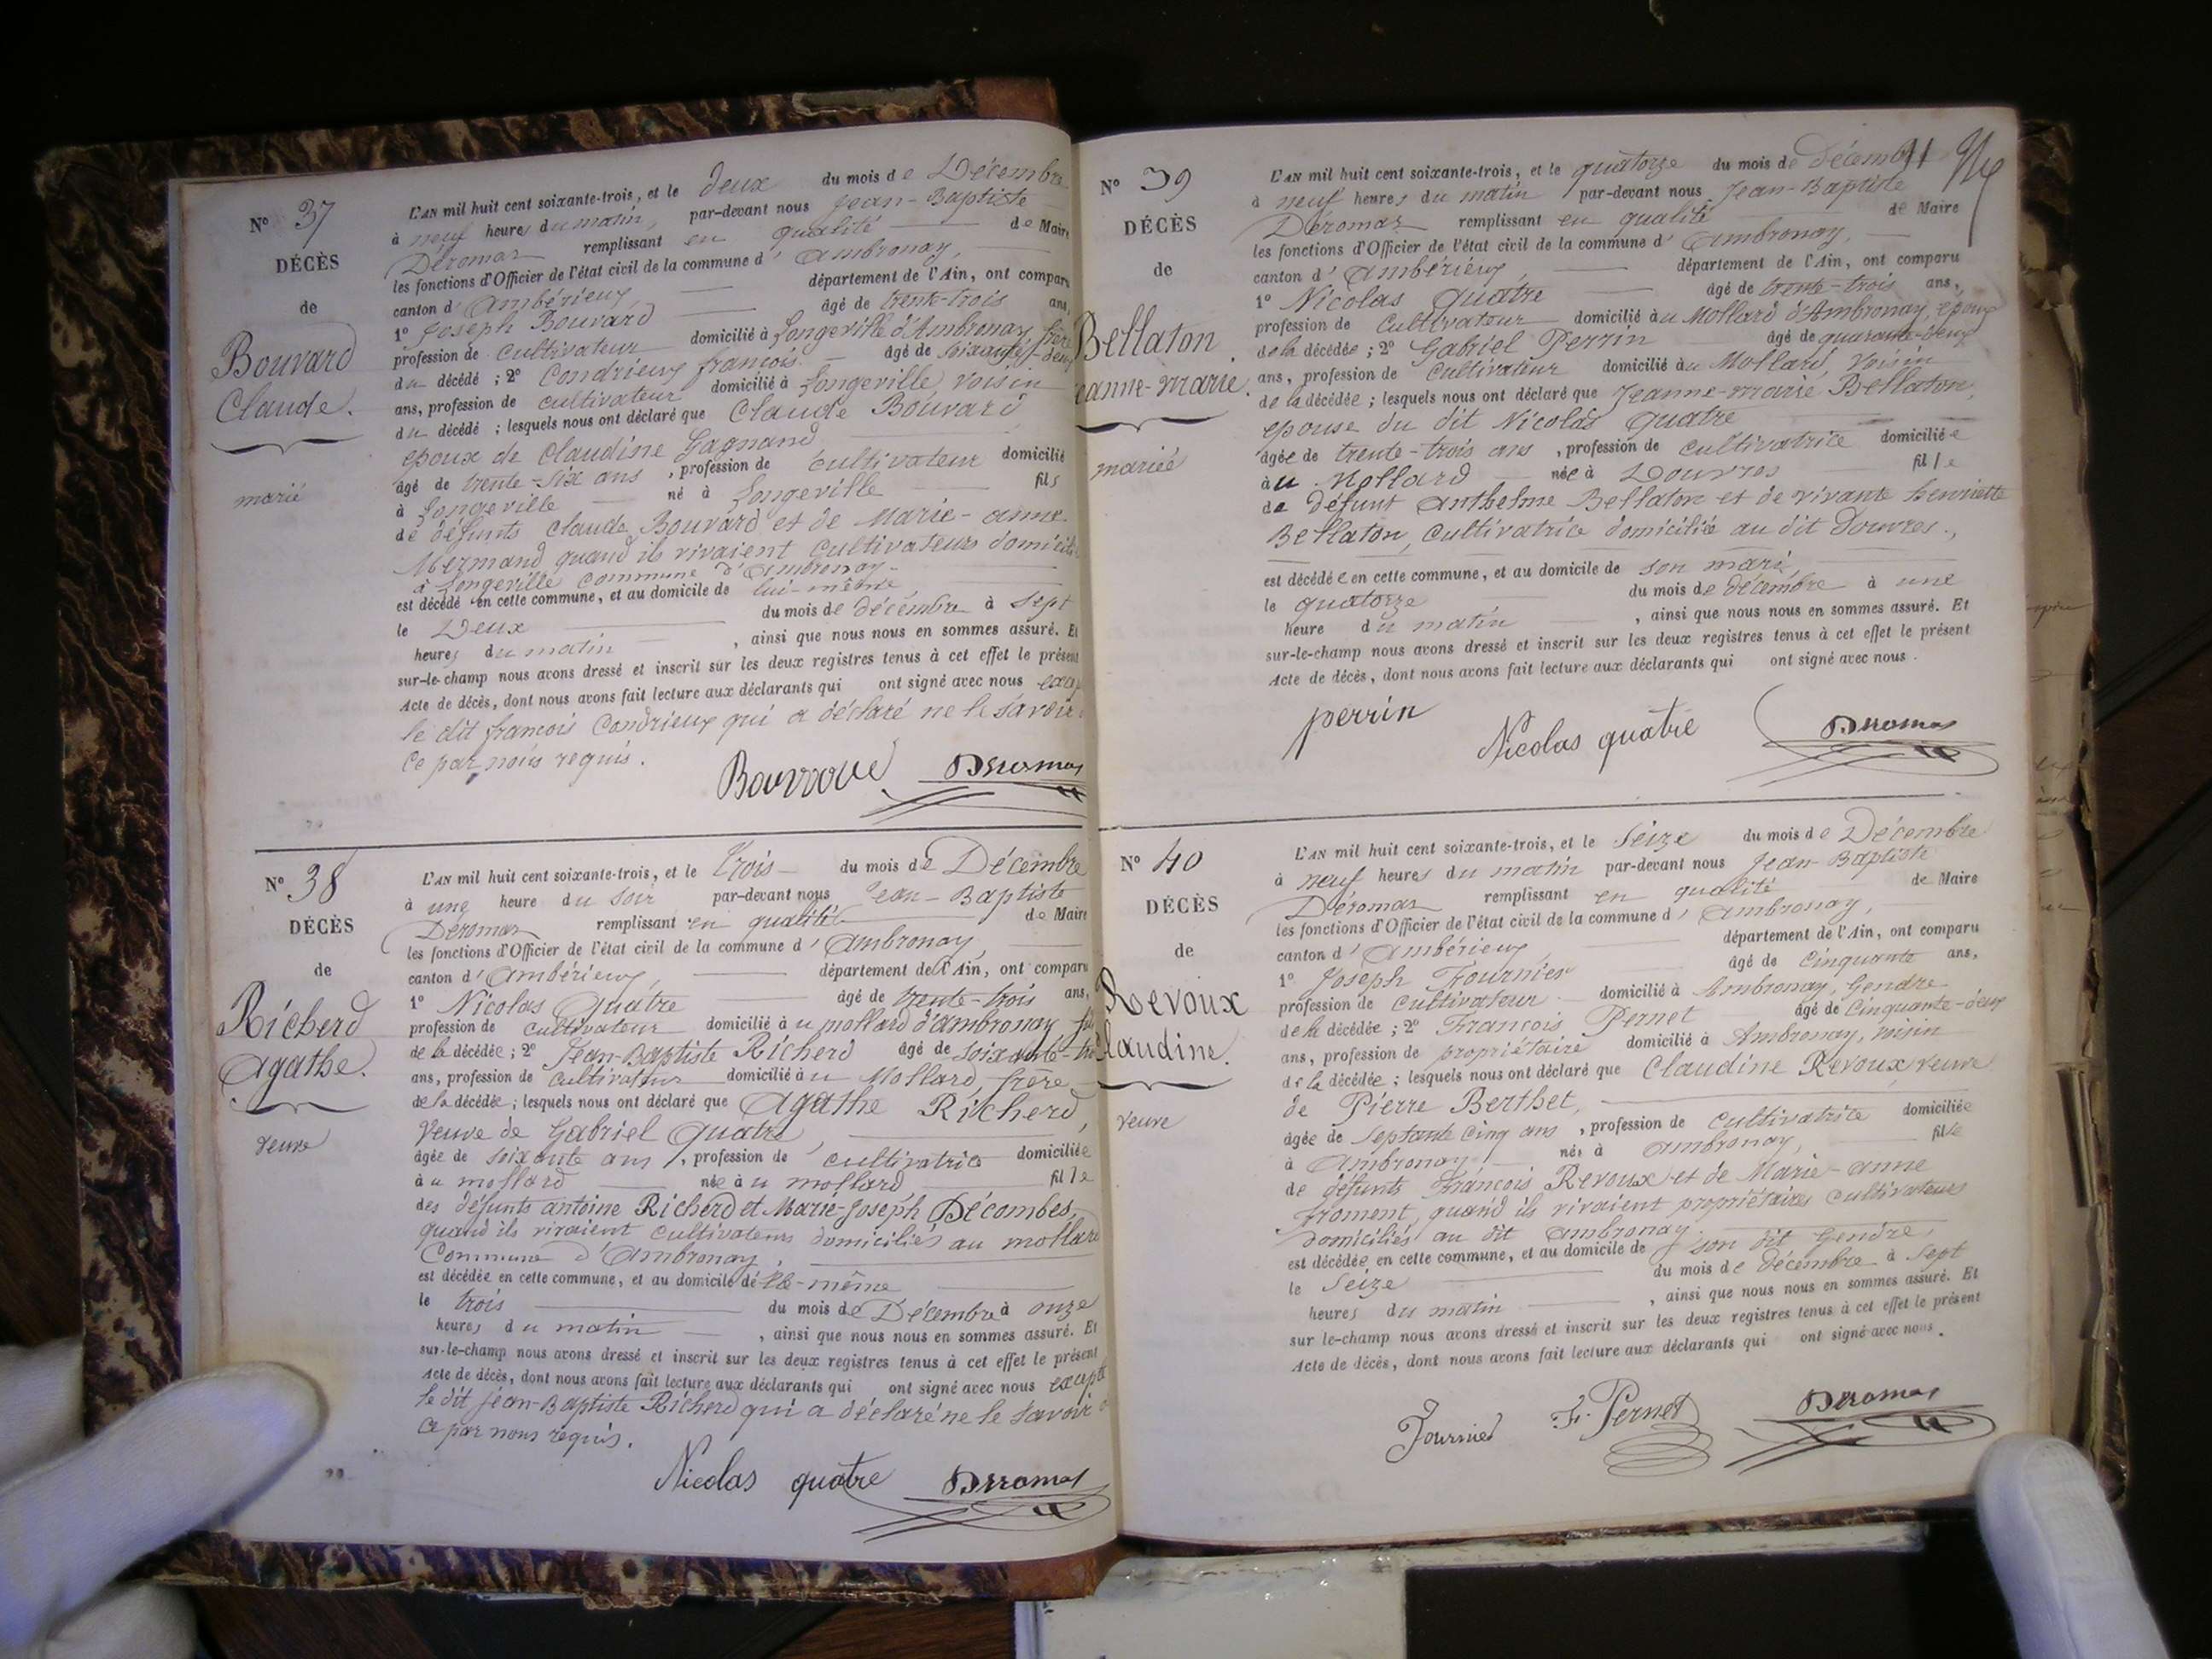 N° 37
DÉCÈS
de
Bouvard
Claude.
marié
L'AN mil huit cent soixante-trois, et le deux du mois de Décembre
à neuf heures du matin, par-devant nous Jean-Baptiste
Déromas remplissant en qualité de Maire
les fonctions d'Officier de l'état civil de la commune d'Ambronay,
canton d'Ambérieux, département de l'Ain, ont comparu
1° Joseph Bouvard âgé de trente-trois ans,
profession de cultivateur domicilié à Longeville d'Ambronay, frère
du décédé ; 2° Condrieux françois. âgé de soixante deux
ans, profession de cultivateur domicilié à Longeville, voisin
du décédé ; lesquels nous ont déclaré que Claude Bouvard
epoux de Claudine Gagnand
âgé de trente-six ans, profession de cultivateur domicilié
à Longeville né à Longeville fils
de défunts Claude Bouvard et de Marie-anne
Mermand quand ils vivaient cultivateurs domiciliés
à Longeville commune d'Ambronay
est décédé en cette commune, et au domicile de lui-même
le Deux du mois de décembre à sept
heures du matin, ainsi que nous nous en sommes assuré. Et
sur-le-champ nous avons dressé et inscrit sur les deux registres tenus à cet effet le présent
Acte de décès, dont nous avons fait lecture aux déclarants qui ont signé avec nous
le dit françois Condrieux qui a déclaré ne le savoir
ce par nous requis.
Bouvard Deromas
N° 38
DÉCÈS
de
Richerd
Agathe.
veuve
L'AN mil huit cent soixante-trois, et le trois du mois de Décembre
à une heure du soir par-devant nous Jean-Baptiste
Déromas remplissant en qualité de Maire
les fonctions d'Officier de l'état civil de la commune d'Ambronay,
canton d'Ambérieux, département de l'Ain, ont comparu
1° Nicolas Quatre âgé de trente-trois ans,
profession de cultivateur domicilié au mollard d'ambronay fils
de la décédée ; 2° Jean-Baptiste Richerd âgé de soixante-
ans, profession de cultivateur domicilié au Mollard, frère
de la décédée ; lesquels nous ont déclaré que Agathe Richerd,
Veuve de Gabriel Quatre,
âgée de soixante ans, profession de cultivatrice domiciliée
au mollard née au mollard fille
des défunts antoine Richerd et Marie-joseph Décombes,
quand ils vivaient cultivateurs domiciliés au mollard
Commune d'Ambronay,
est décédée en cette commune, et au domicile de elle-même
le trois du mois de Décembre à onze
heures du matin, ainsi que nous nous en sommes assuré. Et
sur-le-champ nous avons dressé et inscrit sur les deux registres tenus à cet effet le présent
Acte de décès, dont nous avons fait lecture aux déclarants qui ont signé avec nous excepté
le dit jean-Baptiste Richerd qui a déclaré ne le savoir
ce par nous requis.
Nicolas quatre Deromas
N° 39
DÉCÈS
de
Bellaton
Jeanne-marie.
mariée
91
L'AN mil huit cent soixante-trois, et le quatorze du mois de décembre
à neuf heures du matin par-devant nous Jean-Baptiste
Déromas remplissant en qualité de Maire
les fonctions d'Officier de l'état civil de la commune d'Ambronay,
canton d'Ambérieux, département de l'Ain, ont comparu
1° Nicolas Quatre âgé de trente-trois ans,
profession de cultivateur domicilié au Mollard d'Ambronay, époux
de la décédée ; 2° Gabriel Perrin âgé de quarante-deux
ans, profession de cultivateur domicilié au Mollard, voisin
de la décédée ; lesquels nous ont déclaré que Jeanne-marie Bellaton,
epouse du dit Nicolas Quatre
âgée de trente-trois ans, profession de cultivatrice domiciliée
au Mollard née à Douvres fille
de défunt Anthelme Bellaton et de vivante henriette
Bellaton, cultivatrice domiciliée au dit Douvres.,
est décédée en cette commune, et au domicile de son mari,
le quatorze du mois de décembre à une
heure du matin, ainsi que nous nous en sommes assuré. Et
sur-le-champ nous avons dressé et inscrit sur les deux registres tenus à cet effet le présent
Acte de décès, dont nous avons fait lecture aux déclarants qui ont signé avec nous.
perrin Nicolas quatre Deromas
N° 40
DÉCÈS
de
Revoux
Claudine.
veuve
L'AN mil huit cent soixante-trois, et le Seize du mois de Décembre
à neuf heures du matin par-devant nous Jean-Baptiste
Déromas remplissant en qualité de Maire
les fonctions d'Officier de l'état civil de la commune d'Ambronay,
canton d'Ambérieux, département de l'Ain, ont comparu
1° Joseph Fournier âgé de Cinquante ans,
profession de cultivateur domicilié à Ambronay, Gendre
de la décédée ; 2° François Pernet âgé de Cinquante-deux
ans, profession de propriétaire domicilié à Ambronay, voisin
de la décédée ; lesquels nous ont déclaré que Claudine Revoux veuve
de Pierre Berthet,
âgée de septante cinq ans, profession de cultivatrice domiciliée
à Ambronay née à Ambronay, fille
de défunts François Revoux et de Marie-anne
Froment, quand ils vivaient propriétaires cultivateurs
domiciliés au dit Ambronay.
est décédée en cette commune, et au domicile de son dit Gendre,
le Seize du mois de décembre à sept
heures du matin, ainsi que nous nous en sommes assuré. Et
sur le-champ nous avons dressé et inscrit sur les deux registres tenus à cet effet le présent
Acte de décès, dont nous avons fait lecture aux déclarants qui ont signé avec nous.
Fournier F. Pernet Deromas